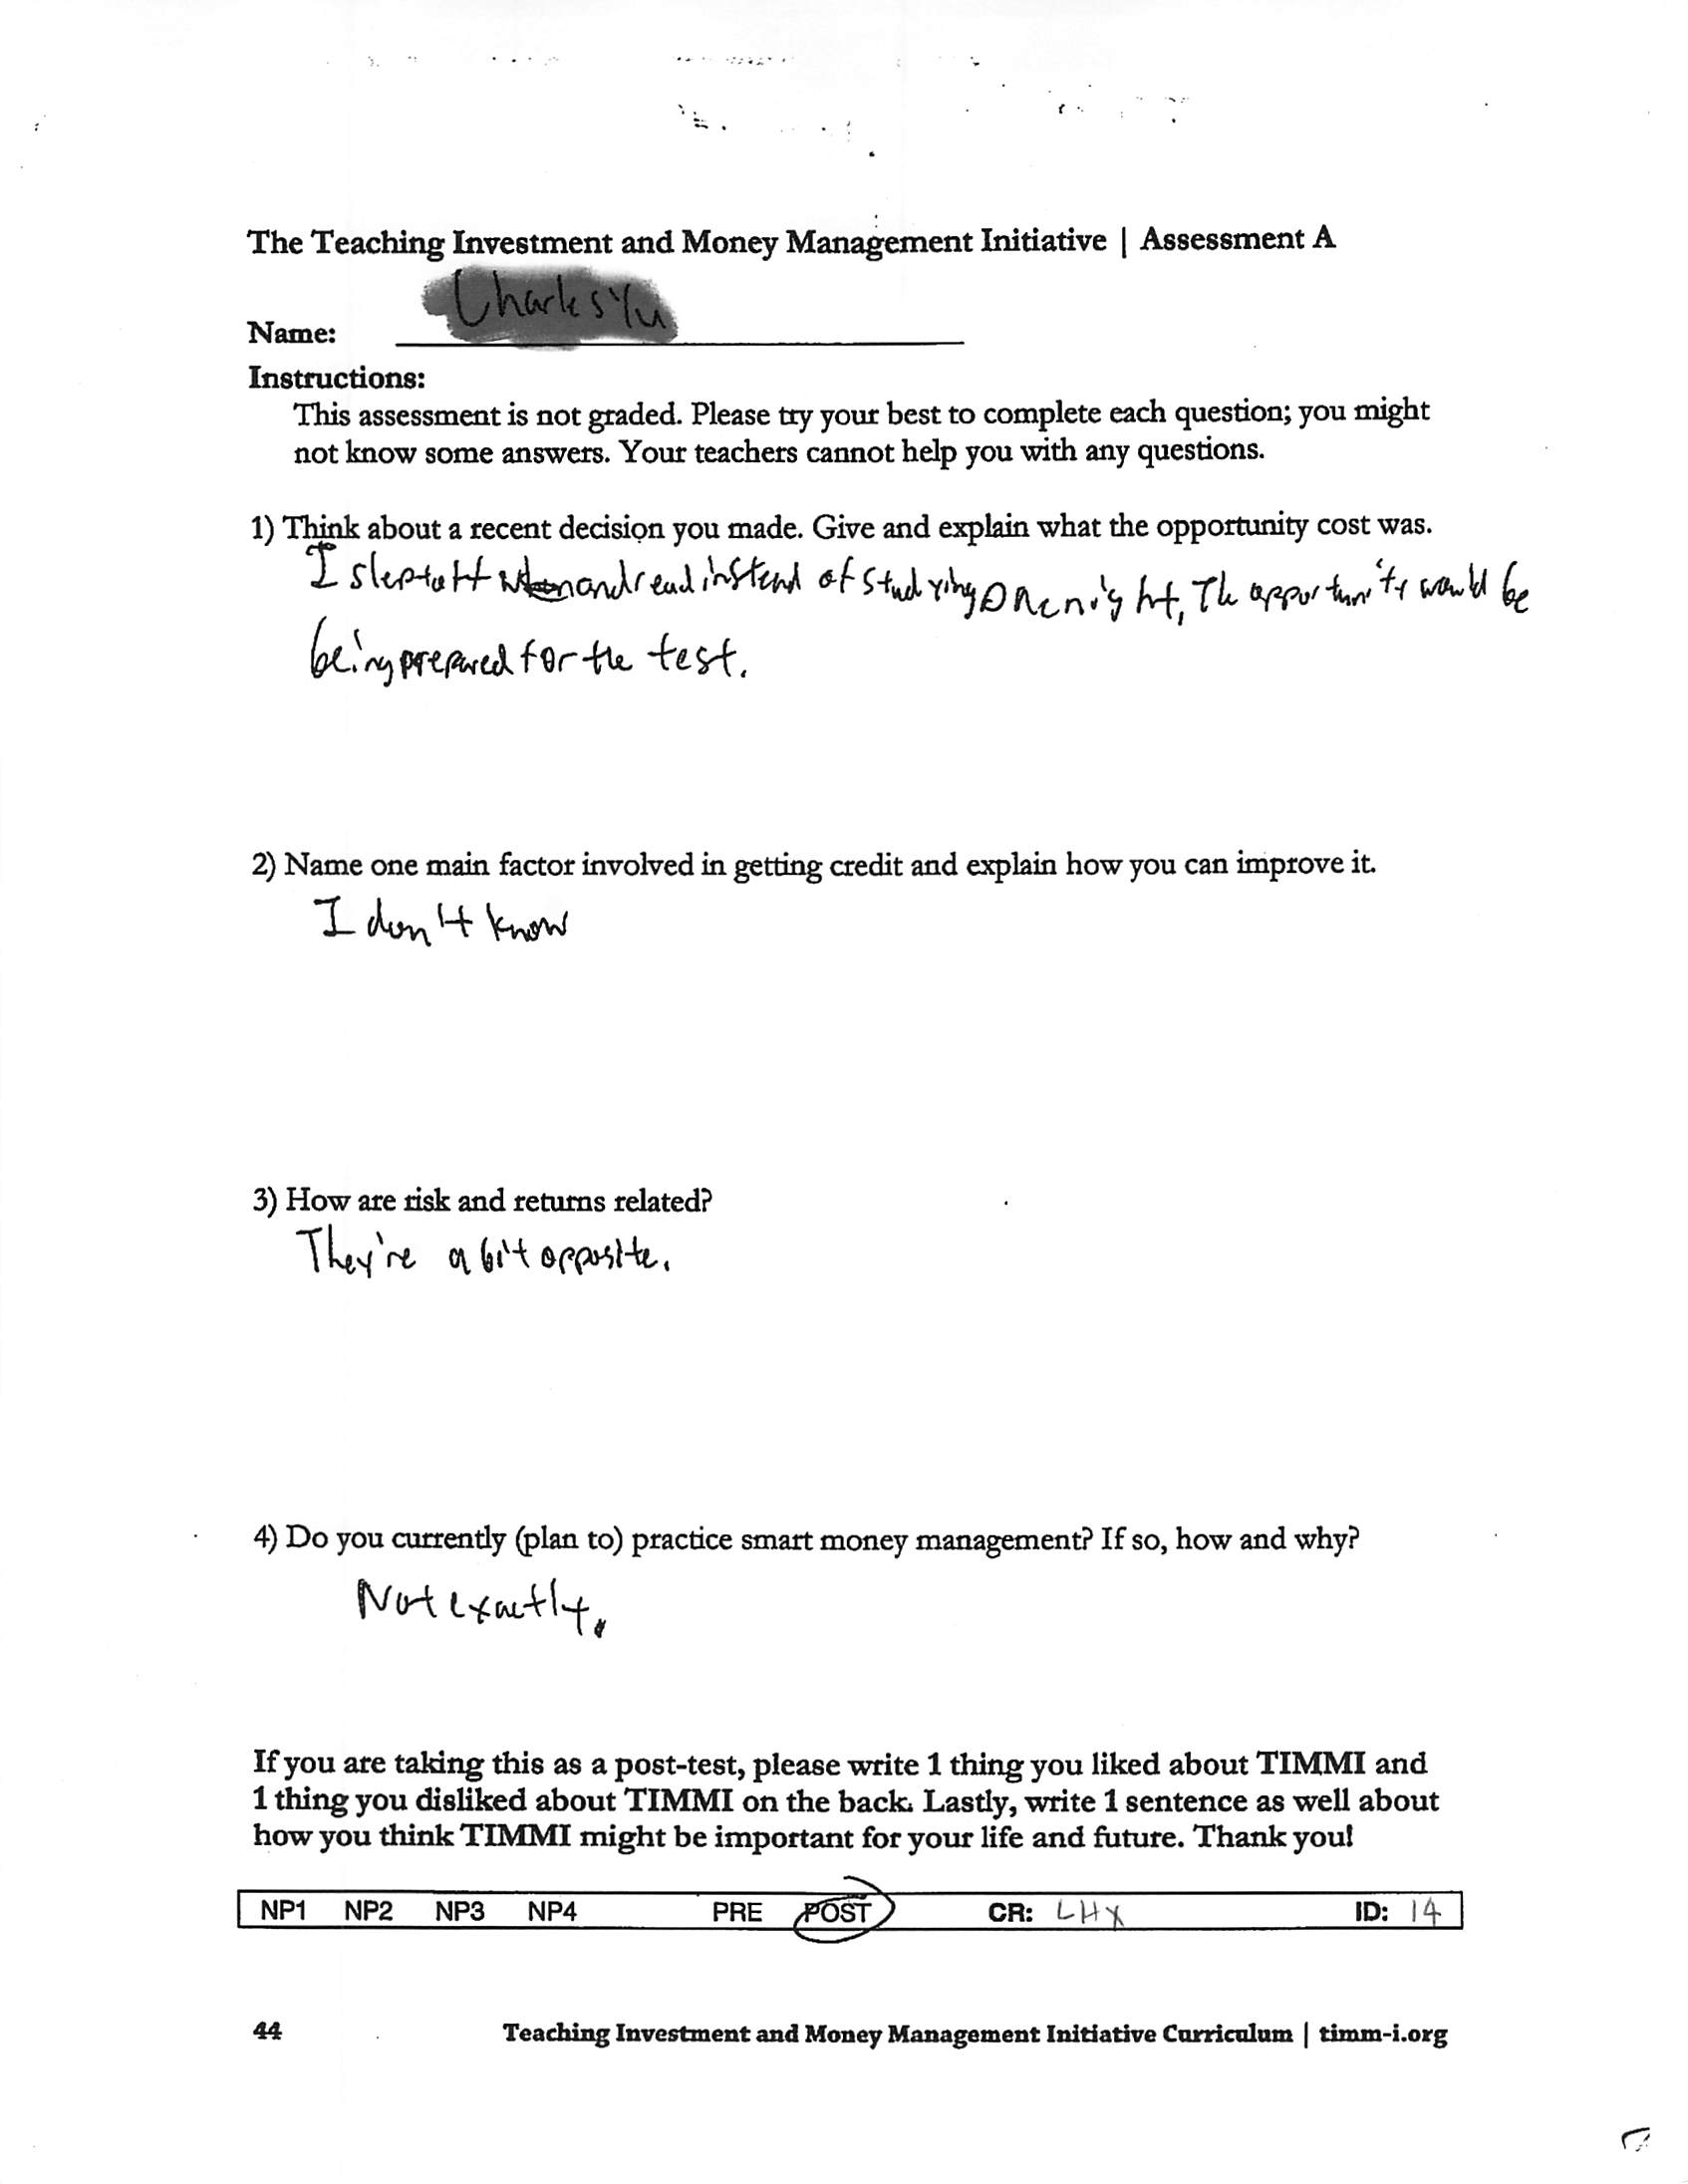 The Teaching Investment and Money Management Initiative | Assessment A
Name: Charles Yu
Instructions:
This assessment is not graded. Please try your best to complete each question; you might
not know some answers. Your teachers cannot help you with any questions.
1) Think about a recent decision you made. Give and explain what the opportunity cost was.
I slept and read instead of studying one night, The opportunity would be
being prepared for the test.
2) Name one main factor involved in getting credit and explain how you can improve it.
I don't know
3) How are risk and returns related?
They're a bit opposite.
4) Do you currently (plan to) practice smart money management? If so, how and why?
Not exactly.
If you are taking this as a post-test, please write 1 thing you liked about TIMMI and
1 thing you disliked about TIMMI on the back. Lastly, write 1 sentence as well about
how you think TIMMI might be important for your life and future. Thank you!
NP1 NP2 NP3 NP4 PRE POST CR: LHX ID: 14
44 Teaching Investment and Money Management Initiative Curriculum | timm-i.org